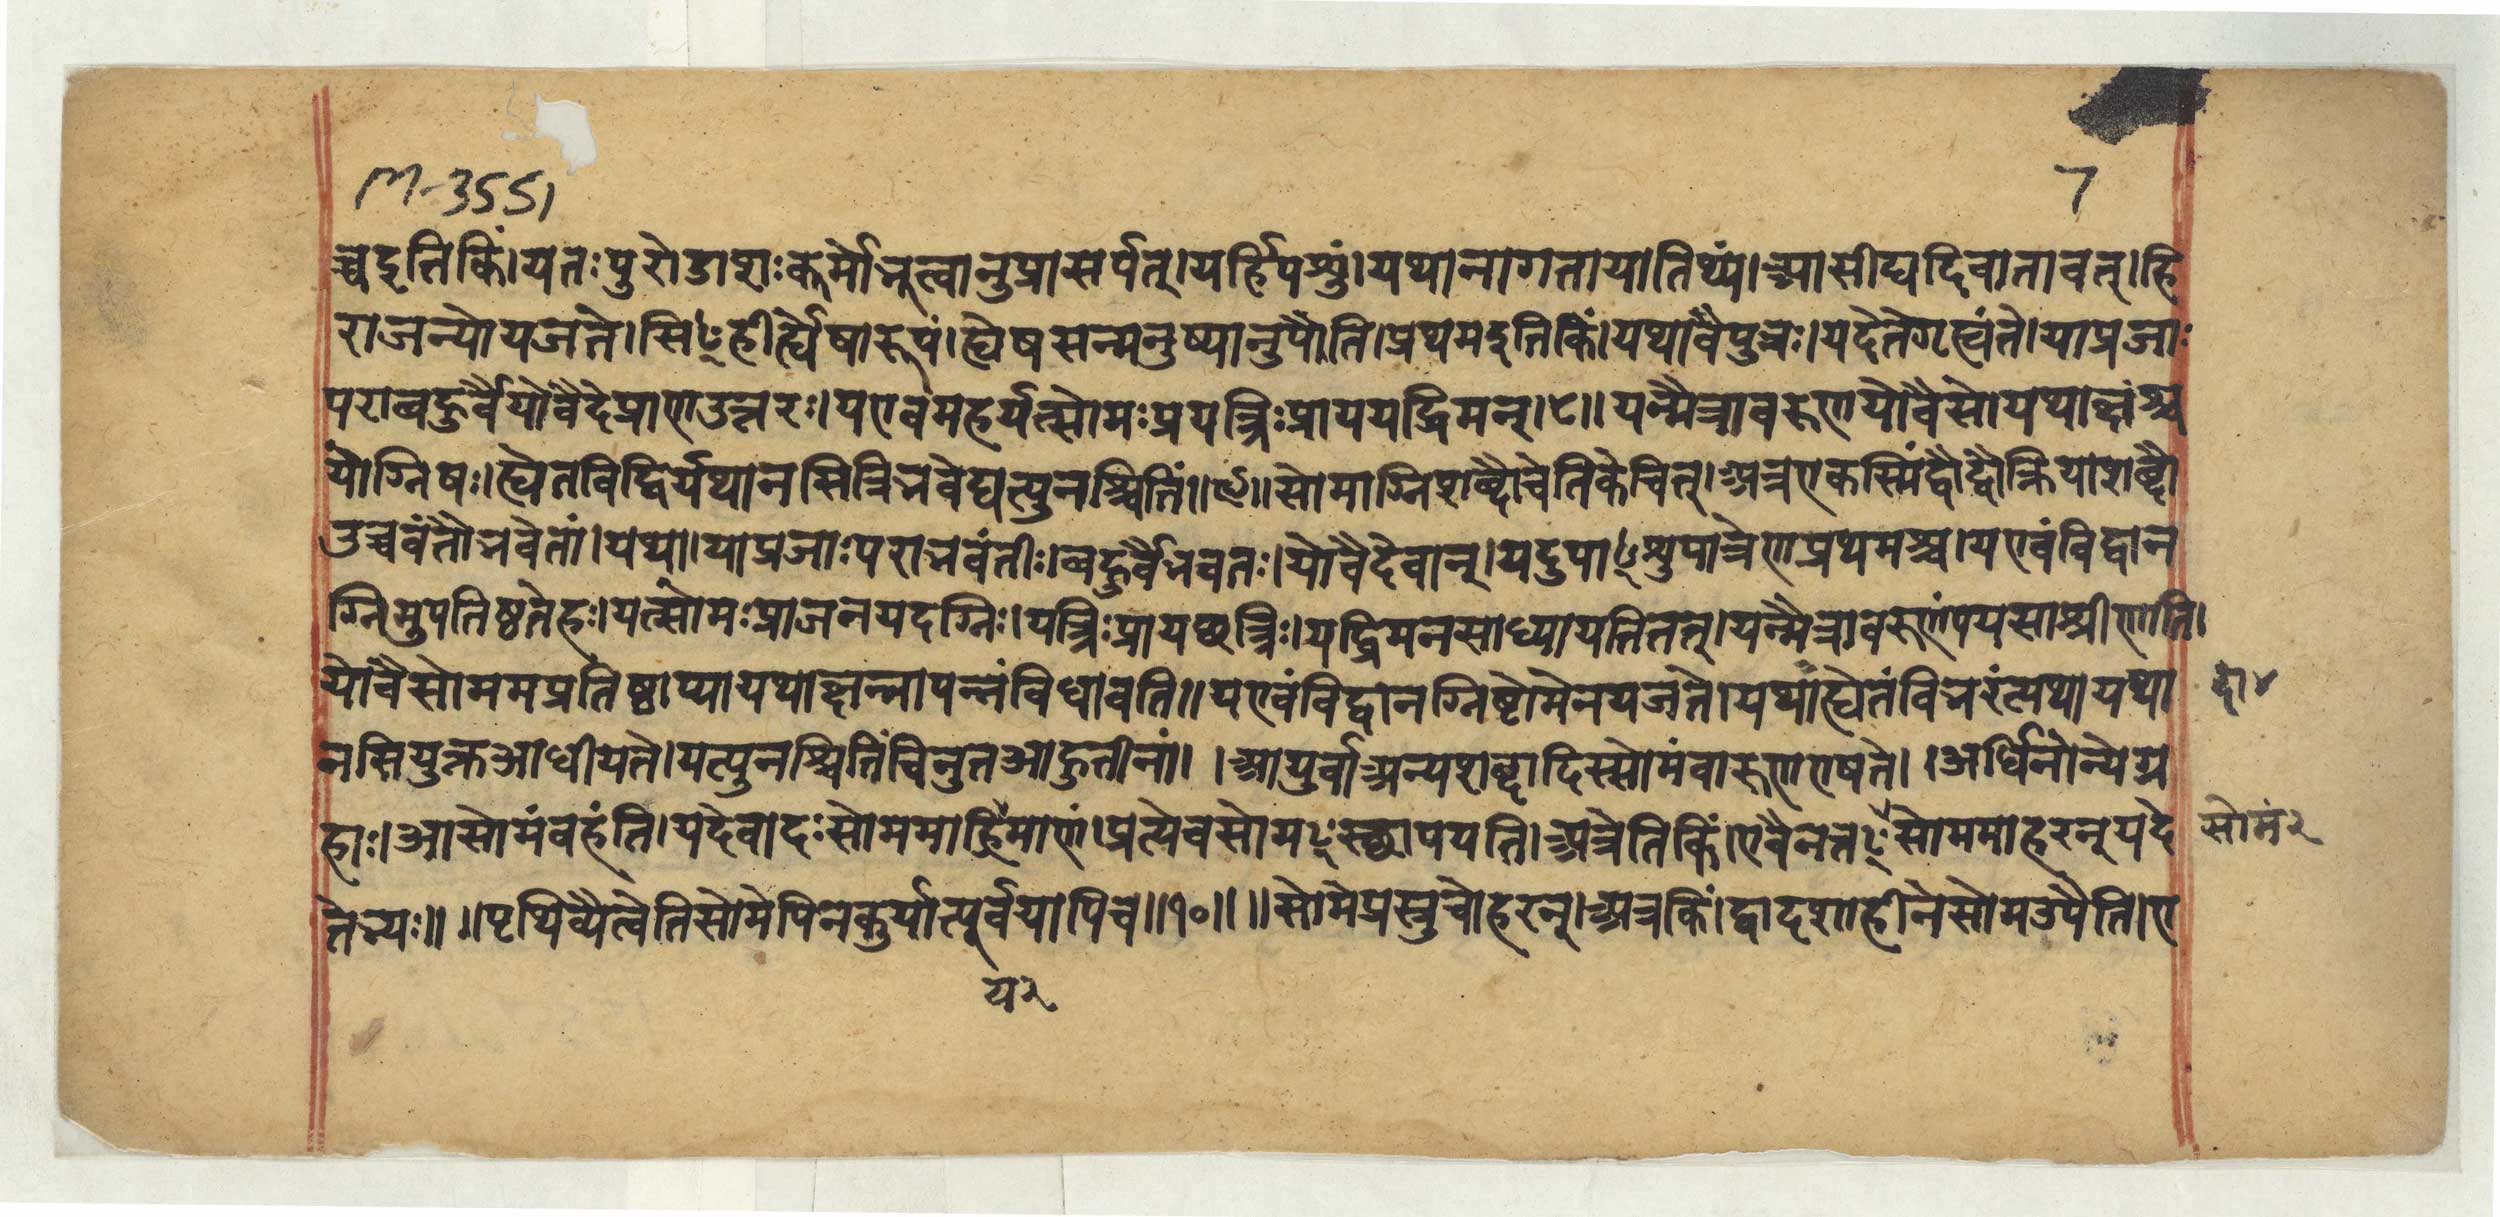 M-3551
7
च्चदृतिकिं।यतःपुरोडाशःकूर्मोभूत्वानुप्रासर्पत्।यर्हिपशुं।यथानागतायातिथ्यं।आसीद्यदिवातावत्।हि
राजन्योयजते।सिꣳहीर्ह्येषारूपं।ह्येषसन्मनुष्यानुपैति।प्रथमदृतिकिं।यथावैपुत्रः।यदेतेगृह्यंते।याप्रजाः
पराबहुर्वैयोवैदेप्राणउत्तरः।यएवमहर्यत्सोमःप्रयन्त्रिःप्राययद्विमन्।८॥यन्मैत्रावरुणयोवैसोयथाह्नंश्च
योग्निषः।ह्येतविद्विर्यथानसित्रिभवेद्यत्पुनश्चितिं॥९॥सोमाग्निशब्दौचेतिकेचित्।अत्रएकस्मिंद्वौद्वौक्रियाशब्दौ
उच्चवंतौभवेतां।यथा।याप्रजाःपराभवंतीः।बहुर्वैभवतः।योवैदेवान्।यदुपाꣳशुपात्रेणप्रथमश्च।यएवंविद्वान
ग्निमुपतिष्ठतेहः।यत्सोमःप्राजनयदग्निः।यन्त्रिःप्रायच्छन्त्रिः।यद्विमनसाध्यायतितत्।यन्मैत्रावरुणंपयसाश्रीणाति।
योवैसोममप्रतिष्ठाप्यायथाह्नान्मापन्नंविधावति॥यएवंविद्वानग्निष्टोमेनयजते।यथाह्येतंविभरंत्यथायथा
दा४
नसियुक्तआधीयते।यत्पुनश्चितिंचिनुतआहुतीनां। ।आयुर्वाअन्यशब्दादिस्सोमंवारुणएषते। ।अर्धिनोन्येग्र
हाः।आसोमंवहंति।यदेवादःसोममाह्रिमाणं।प्रत्येवसोमꣳस्थापयति।अत्रेतिकिं।एवैनत्तꣳसोममाहरन्यदे
सोमं२
तेभ्यः॥ ॥पृथिव्यैत्वेतिसोमेपिनकुर्यात्पूर्वयापिच॥१०॥ ॥सोमेप्रस्तुचोहरन्।अत्रकिं।द्वादशाहीनेसोमउपैति।ए
य२